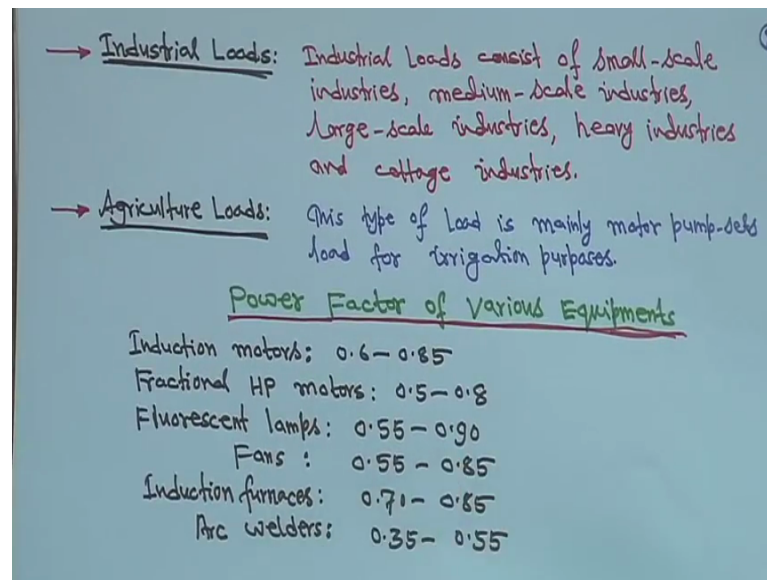 → Industrial Loads: Industrial Loads consist of small-scale
industries, medium-scale industries,
large-scale industries, heavy industries
and cottage industries.
→ Agriculture Loads: This type of Load is mainly motor pump-sets
load for irrigation purposes.
Power Factor of Various Equipments
Induction motors: 0.6-0.85
Fractional HP motors: 0.5-0.8
Fluorescent lamps: 0.55-0.90
Fans: 0.55-0.85
Induction furnaces: 0.70-0.85
Arc welders: 0.35-0.55